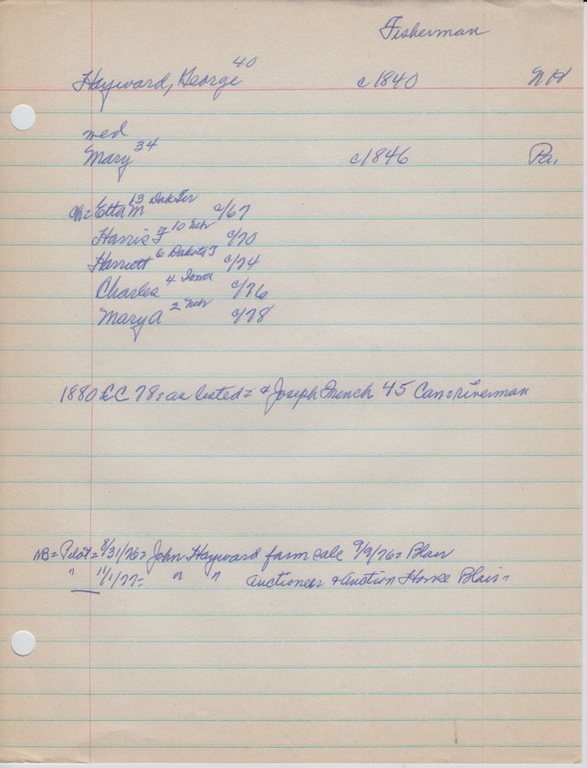 Fisherman
Hayward, George 40 c1840 NH
wed
Mary 34 c1846 Pa.
Ch= Etta M 13 Dak Ter c/67
Harris F 10 Nebr c/70
Harriett 6 Dakota T c/74
Charles 4 Iowa c/76
Mary A 2 Nebr c/78
1880 C 78: as listed= & Joseph French 45 Can=riverman
NB= Pilot= 8/31/76= John Hayward farm sale 9/9/76= Blair
" 11/1/77= " " auctioneer & Auction House Blair=